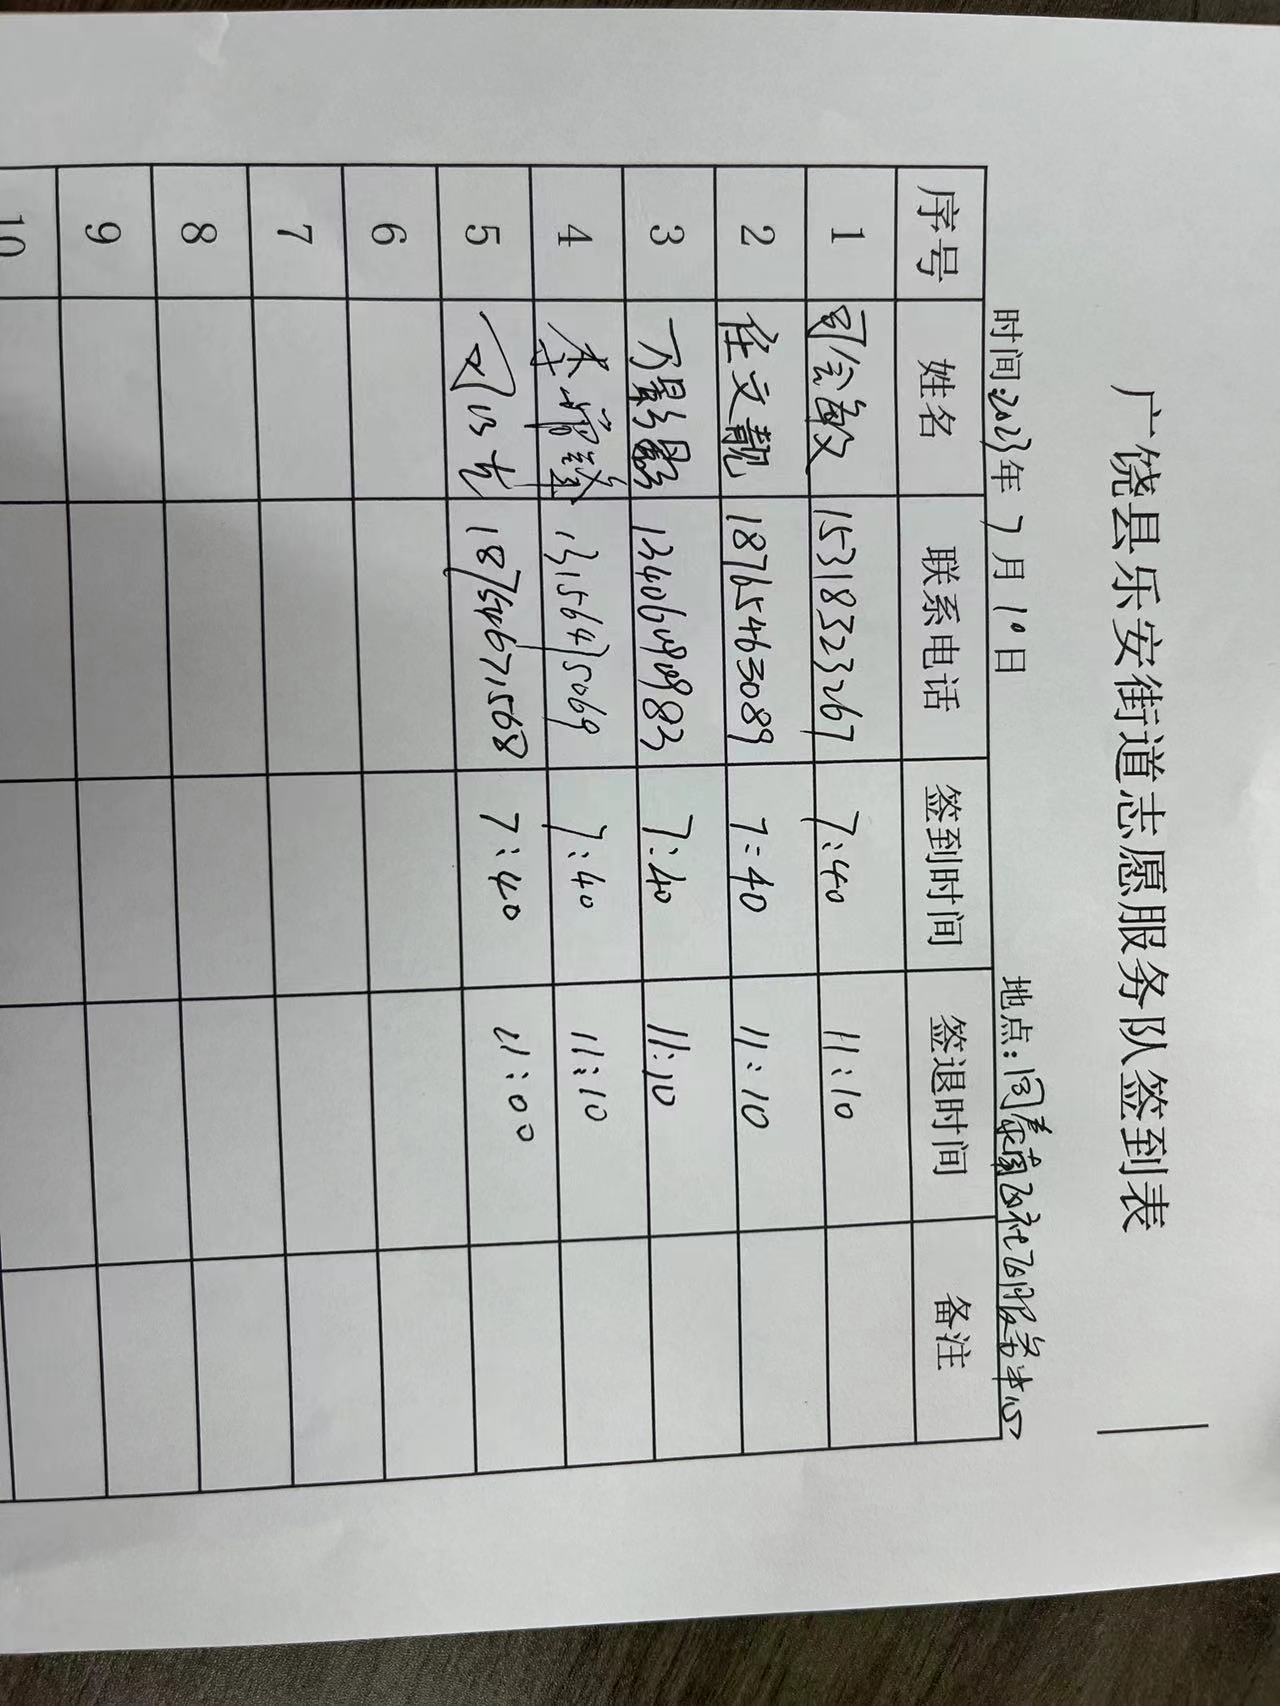 广饶县乐安街道志愿服务队签到表
时间:2023年7月10日 地点:同泰南区社区服务中心
序号 姓名 联系电话 签到时间 签退时间 备注
1 司会敏 15318323267 7:40 11:10
2 任文靓 18765463089 7:40 11:10
3 万影影 13406090983 7:40 11:10
4 李 13156475069 7:40 11:10
5 18754671568 7:40 11:00
6
7
8
9
10